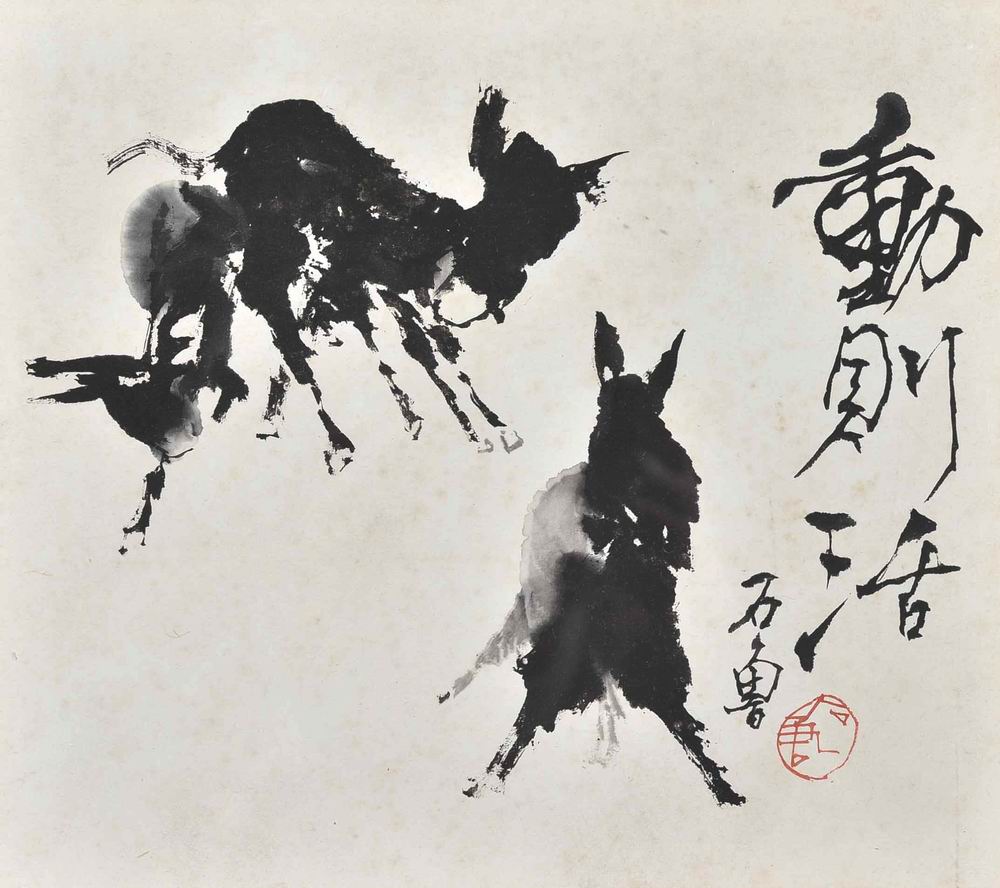 動則活
石魯